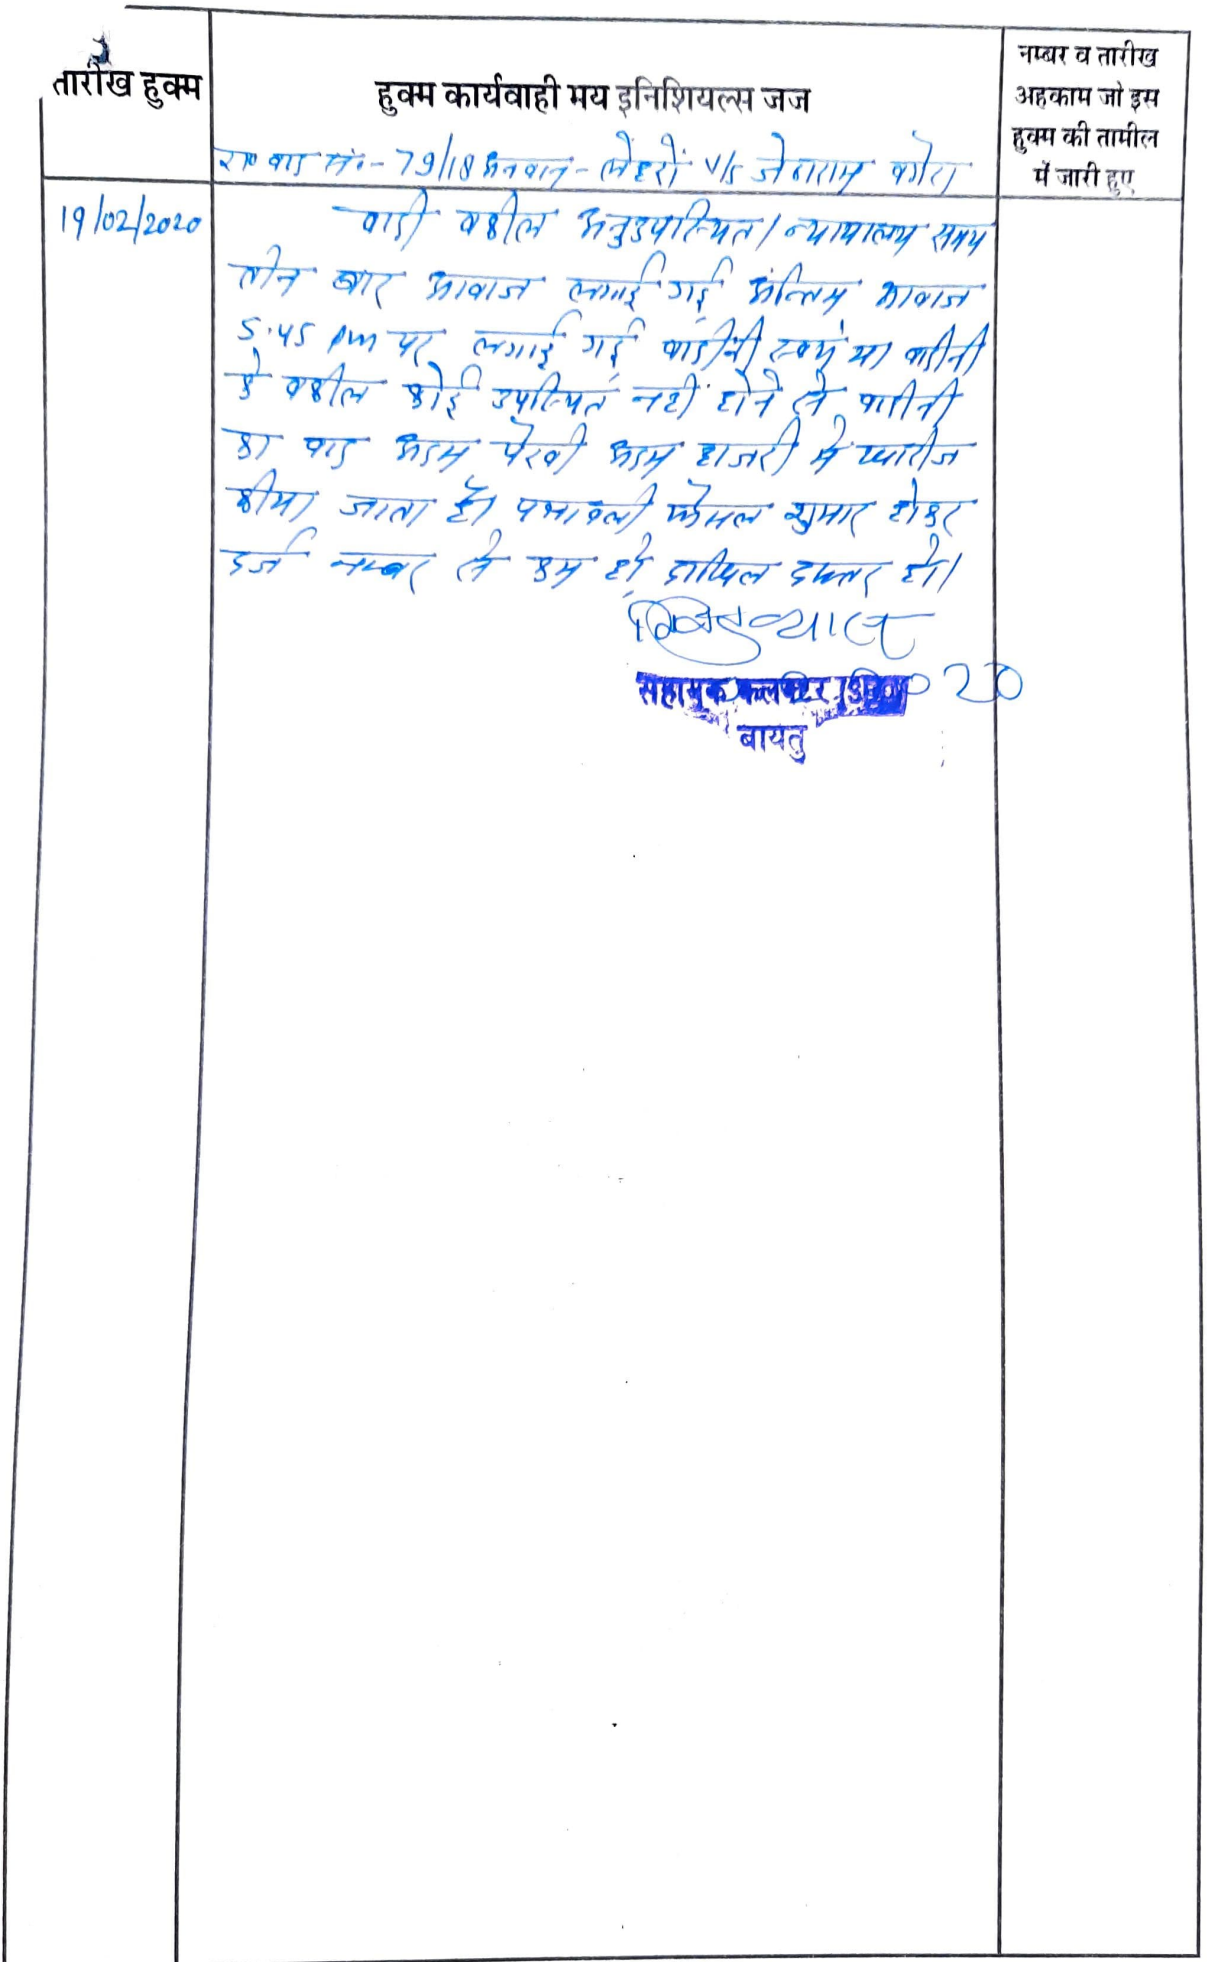 तारीख हुक्म
हुक्म कार्यवाही मय इनिशियल्स जज
नम्बर व तारीख
अहकाम जो इस
हुक्म की तामील
में जारी हुए
रा० वाद सं.- 79/18 अनवान - लेहरों v/s जेठाराम वगेरा
19/02/2020
वादी वकील अनुउपस्थित। न्यायालय समय
तीन बार आवाज लगाई गई अन्तिम आवाज
5.45 pm पर लगाई गई वादीनी स्वयं या वादीनी
के वकील कोई उपस्थित नहीं होने से वादीनी
का वाद अदम पैरवी अदम हाजरी में खारीज
कीया जाता है। पत्रावली फैसल शुमार होकर
दर्ज नम्बर से कम हो दाखिल दफ्तर हो।
सहायक कलक्टर
बायतु